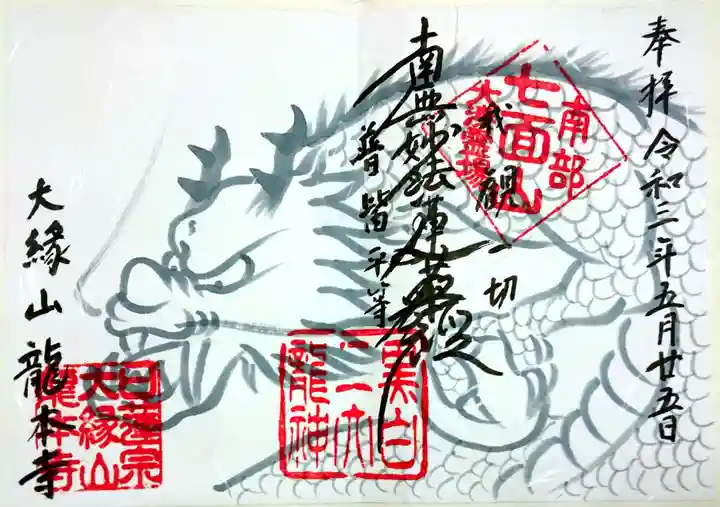 奉拝
令和三年五月廿五日
南部
七面山
大洪霊場
我観一切
南無妙法蓮華経
普皆平等
黒白
二大
龍神
大縁山龍本寺
日蓮宗
大縁山
龍本寺